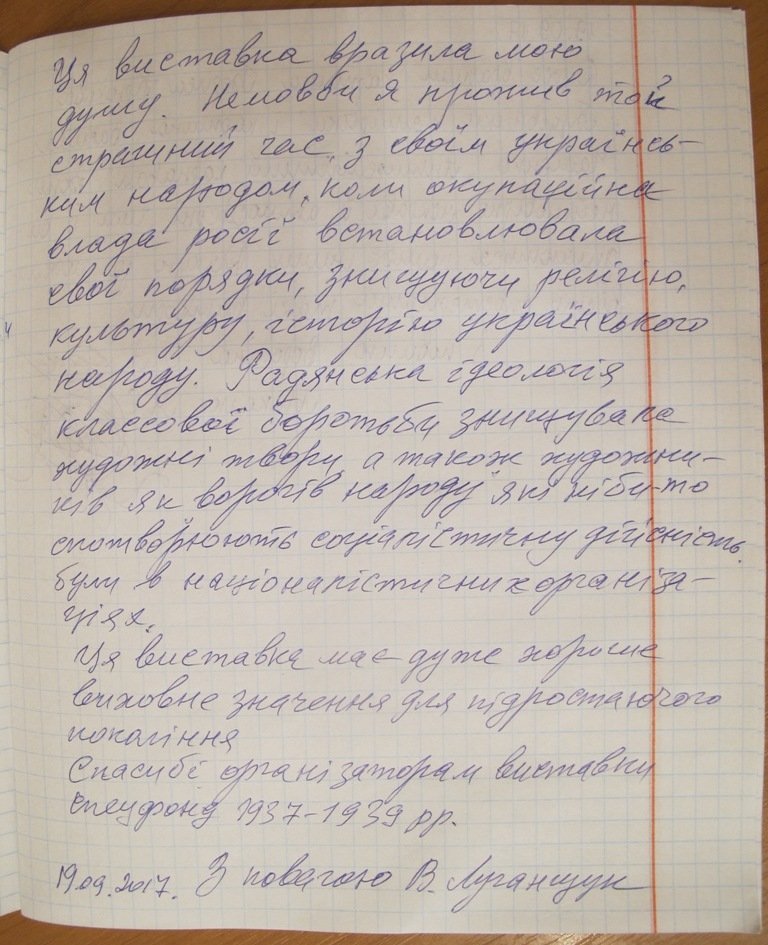 Ця виставка вразила мою
душу. Немовби я прожив той
страшний час, з своїм українсь-
ким народом, коли окупаційна
влада росії встановлювала
свої порядки, знищуючи релігію,
культуру, історію українського
народу. Радянська ідеологія
классової боротьби знищувала
художні твори, а також художни-
ків як ворогів народу" які ніби-то
спотворюють соціалістичну дійсність.
були в націоналістичних організа-
ціях.
Ця виставка має дуже хороше
виховне значення для підростаючого
покоління
Спасибі організаторам виставки
спецфонд 1937-1939 рр.
19.09.2017. З повагою В. Луганщук